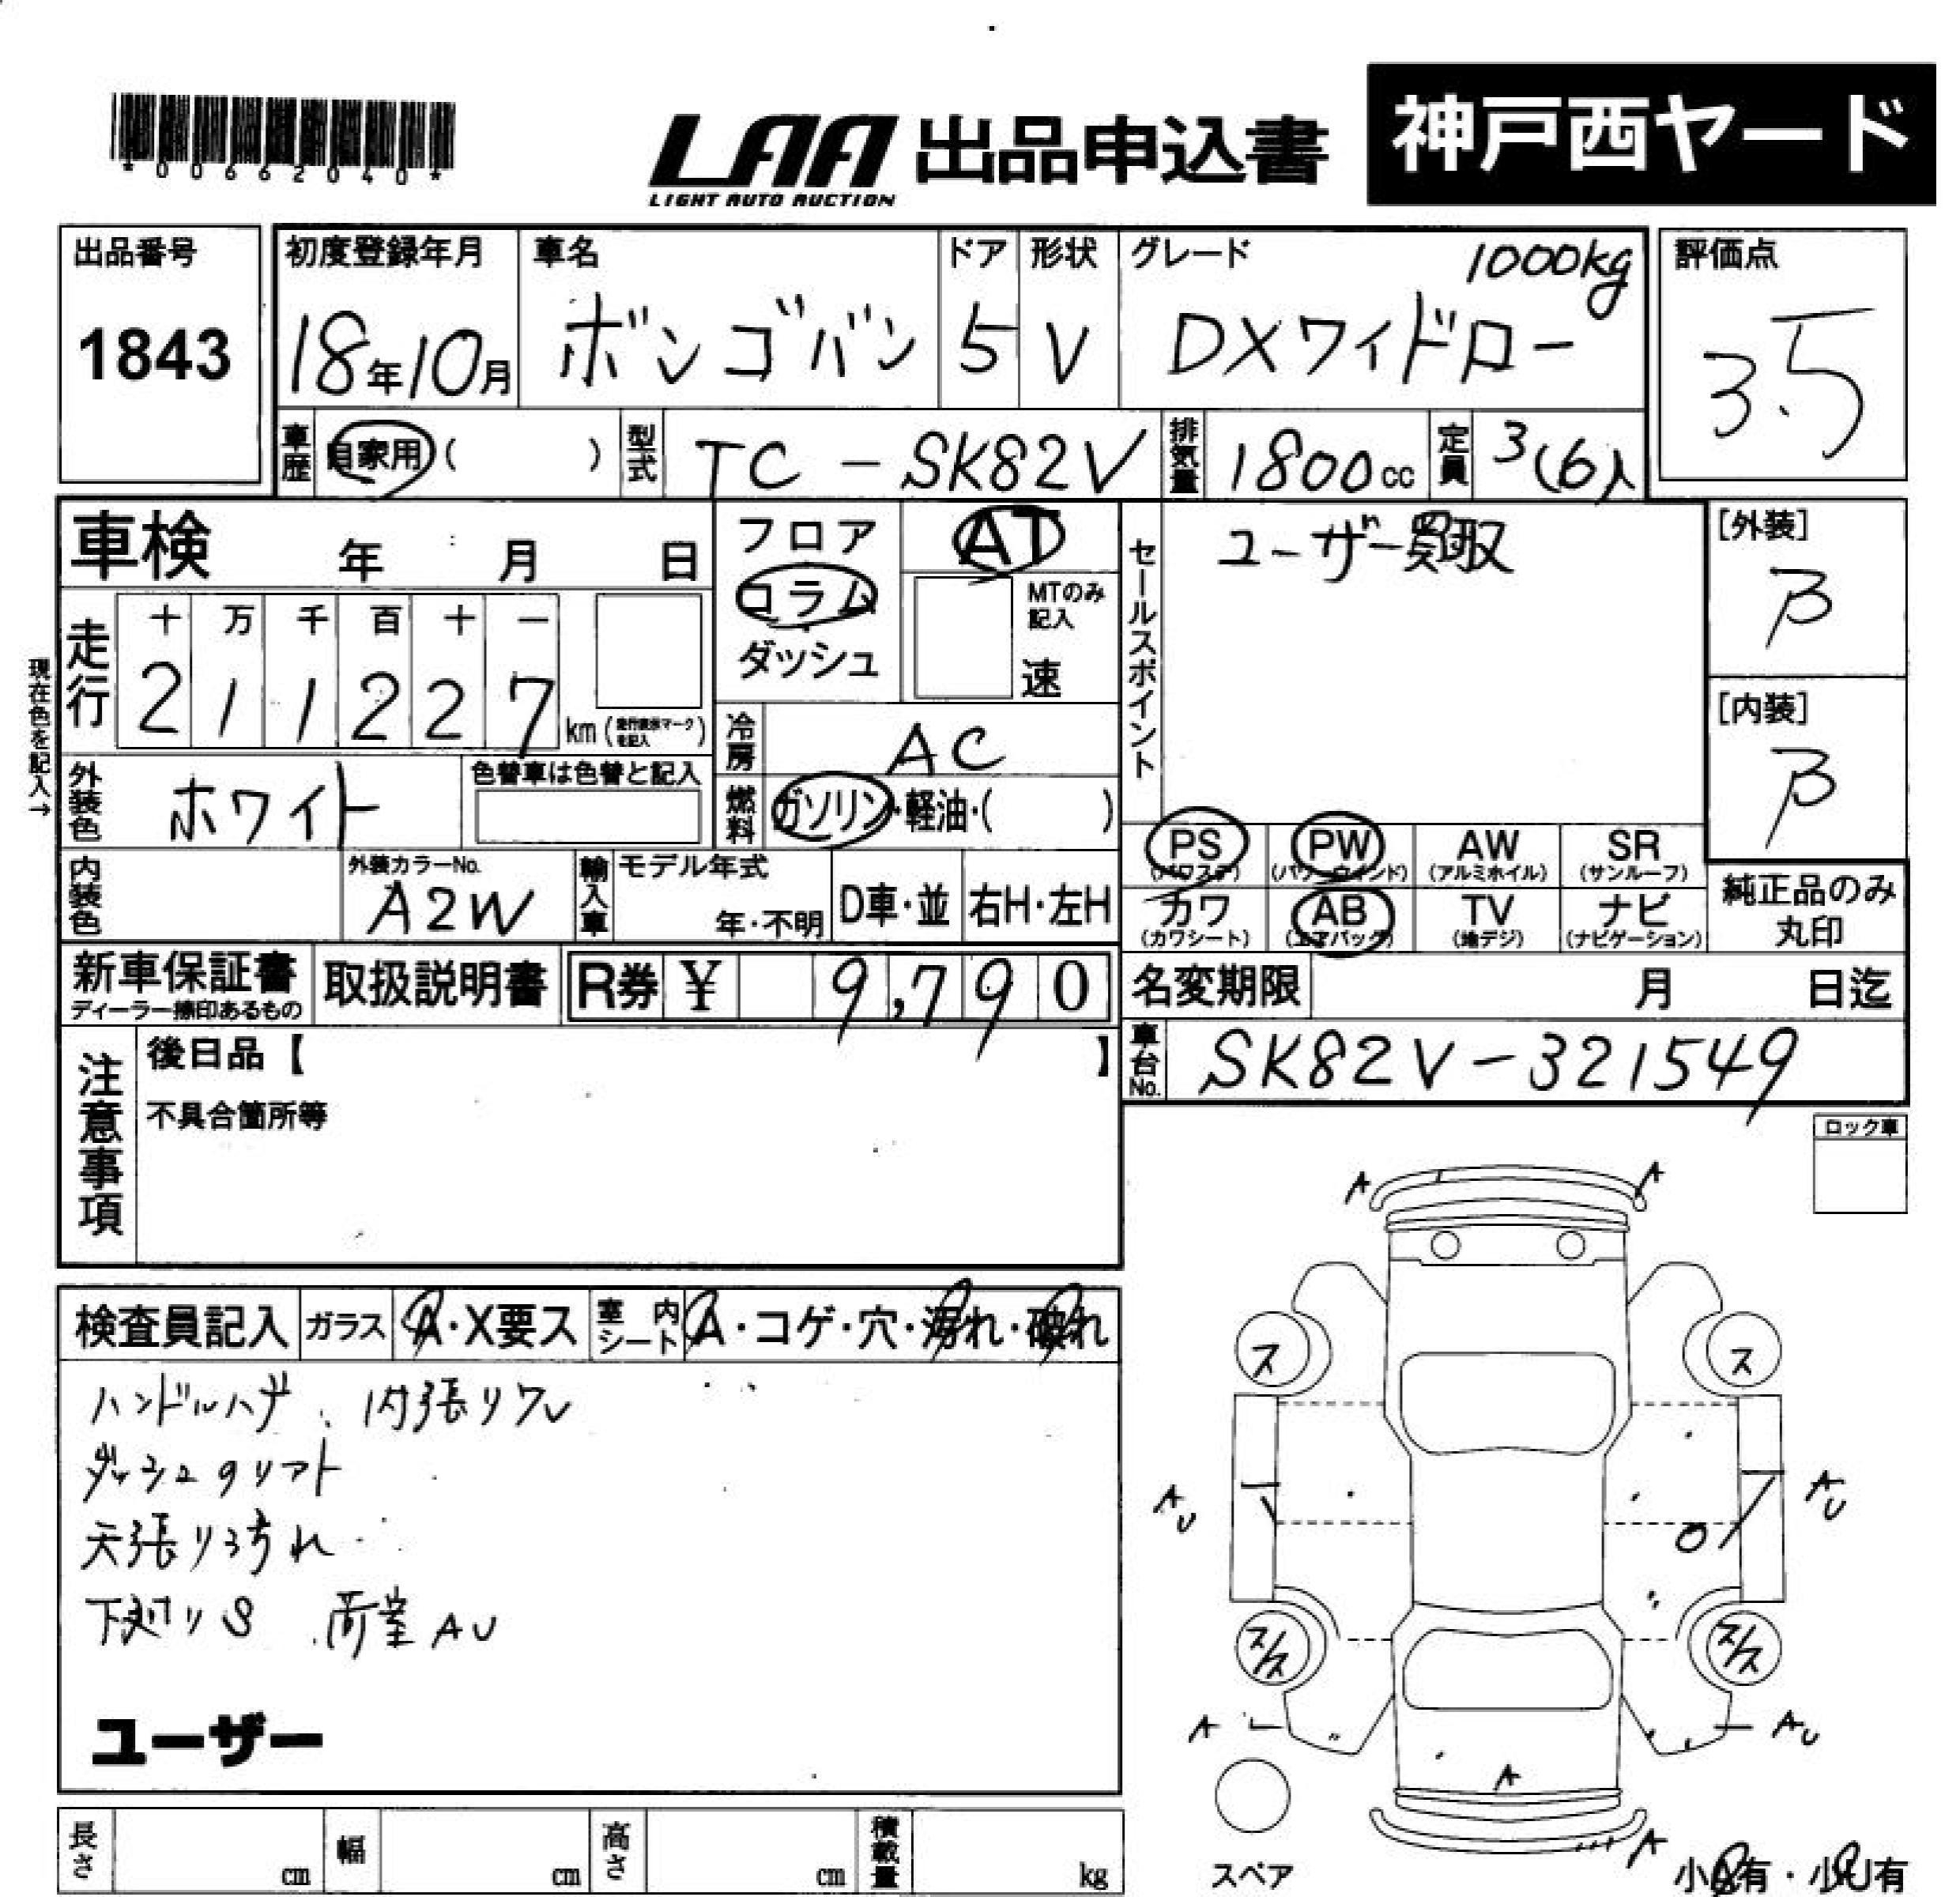 *00662040*
LAA 出品申込書 神戸西ヤード
LIGHT AUTO AUCTION
出品番号
1843
初度登録年月
18年10月
車名
ボンゴバン
ドア
5
形状
V
グレード
1000kg
DXワイドロー
評価点
3.5
車歴
自家用( )
型式
TC-SK82V
排気量
1800cc
定員
3(6)人
車検 年 月 日
現在色を記入→
走行
十 万 千 百 十 一
2 1 1 2 2 7
km(走行疑義マークを記入)
フロア
コラム
ダッシュ
AT
MTのみ記入
速
冷房
AC
燃料
ガソリン・軽油・( )
セールスポイント
ユーザー買取
[外装]
β
[内装]
β
外装色
ホワイト
色替車は色替と記入
内装色
外装カラーNo.
A2W
輸入車
モデル年式
年・不明
D車・並
右H・左H
PS
(パワステ)
PW
(パワーウインド)
AW
(アルミホイル)
SR
(サンルーフ)
カワ
(カワシート)
AB
(エアバッグ)
TV
(地デジ)
ナビ
(ナビゲーション)
純正品のみ
丸印
新車保証書
ディーラー捺印あるもの
取扱説明書
R券 ¥ 9,790
名変期限 月 日迄
車台No.
SK82V-321549
注意事項
後日品【 】
不具合箇所等
ロック車
検査員記入
ガラス
A・X要ス
室内シート
A・コゲ・穴・汚れ・破れ
ハンドルハゲ、内張りワレ
ダッシュクリアト
天張り汚れ
下廻りS、荷室AU
ユーザー
A A
ス ス
AU AU
ス/ス ス/ス
A AU
A
A
スペア
小A有・小U有
長さ cm
幅 cm
高さ cm
積載量 kg